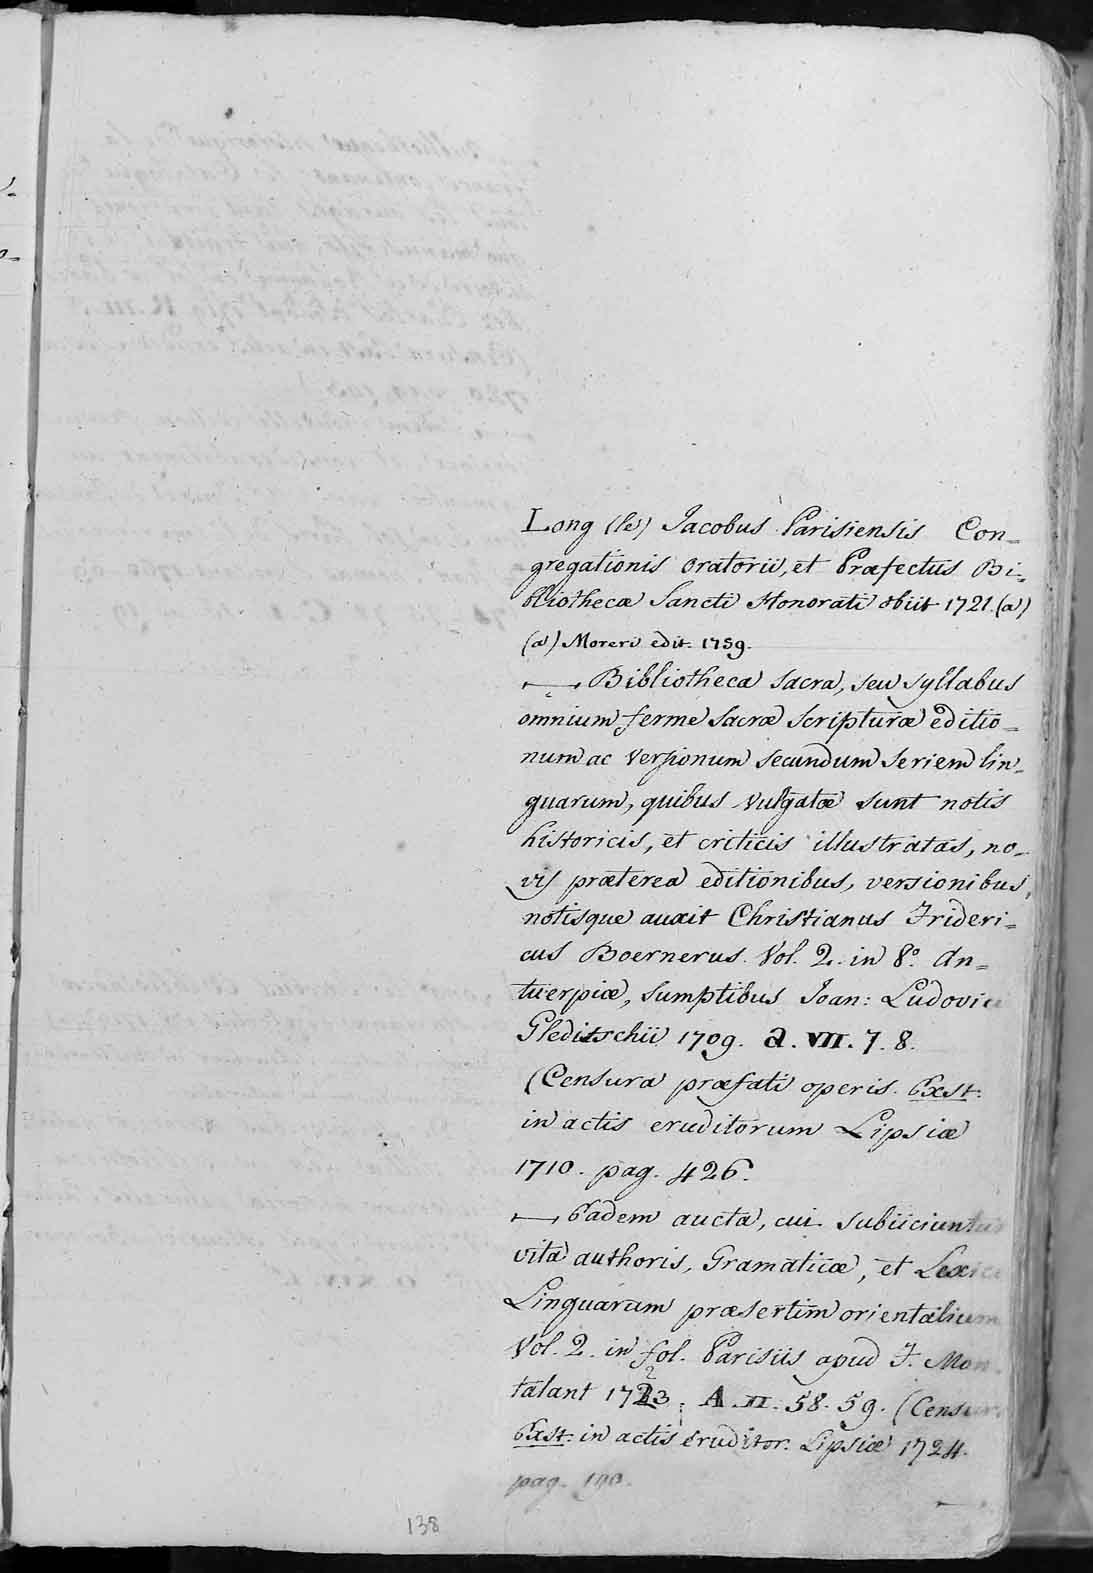 Long (le) Jacobus Parisiensis Con=
gregationis Oratorii, et Præfectus Bi=
bliothecæ Sancti Honorati obiit 1721. (a)
(a) Moreri edit. 1759.
—, Bibliotheca sacra, seu syllabus
omnium ferme sacræ scripturæ editio=
num ac versionum secundum seriem lin=
guarum, quibus vulgatæ sunt notis
historicis, et criticis illustratas, no=
vis præterea editionibus, versionibus,
notisque auxit Christianus Frideri=
cus Boernerus. Vol. 2. in 8º. An=
tuerpiæ, sumptibus Joan: Ludovici
Gleditschii 1709. a. VII. 7. 8.
(Censura præfati operis. Exst:
in actis eruditorum Lipsiæ
1710. pag. 426.
—, Eadem aucta, cui subiiciuntur
vita authoris, Gramaticæ, et Lexica
Linguarum præsertim orientalium
Vol. 2. in fol. Parisiis apud F. Mon=
talant 1723. A. II. 58. 59. (Censura
Exst: in actis eruditor. Lipsiæ 1724.
pag. 190.
138